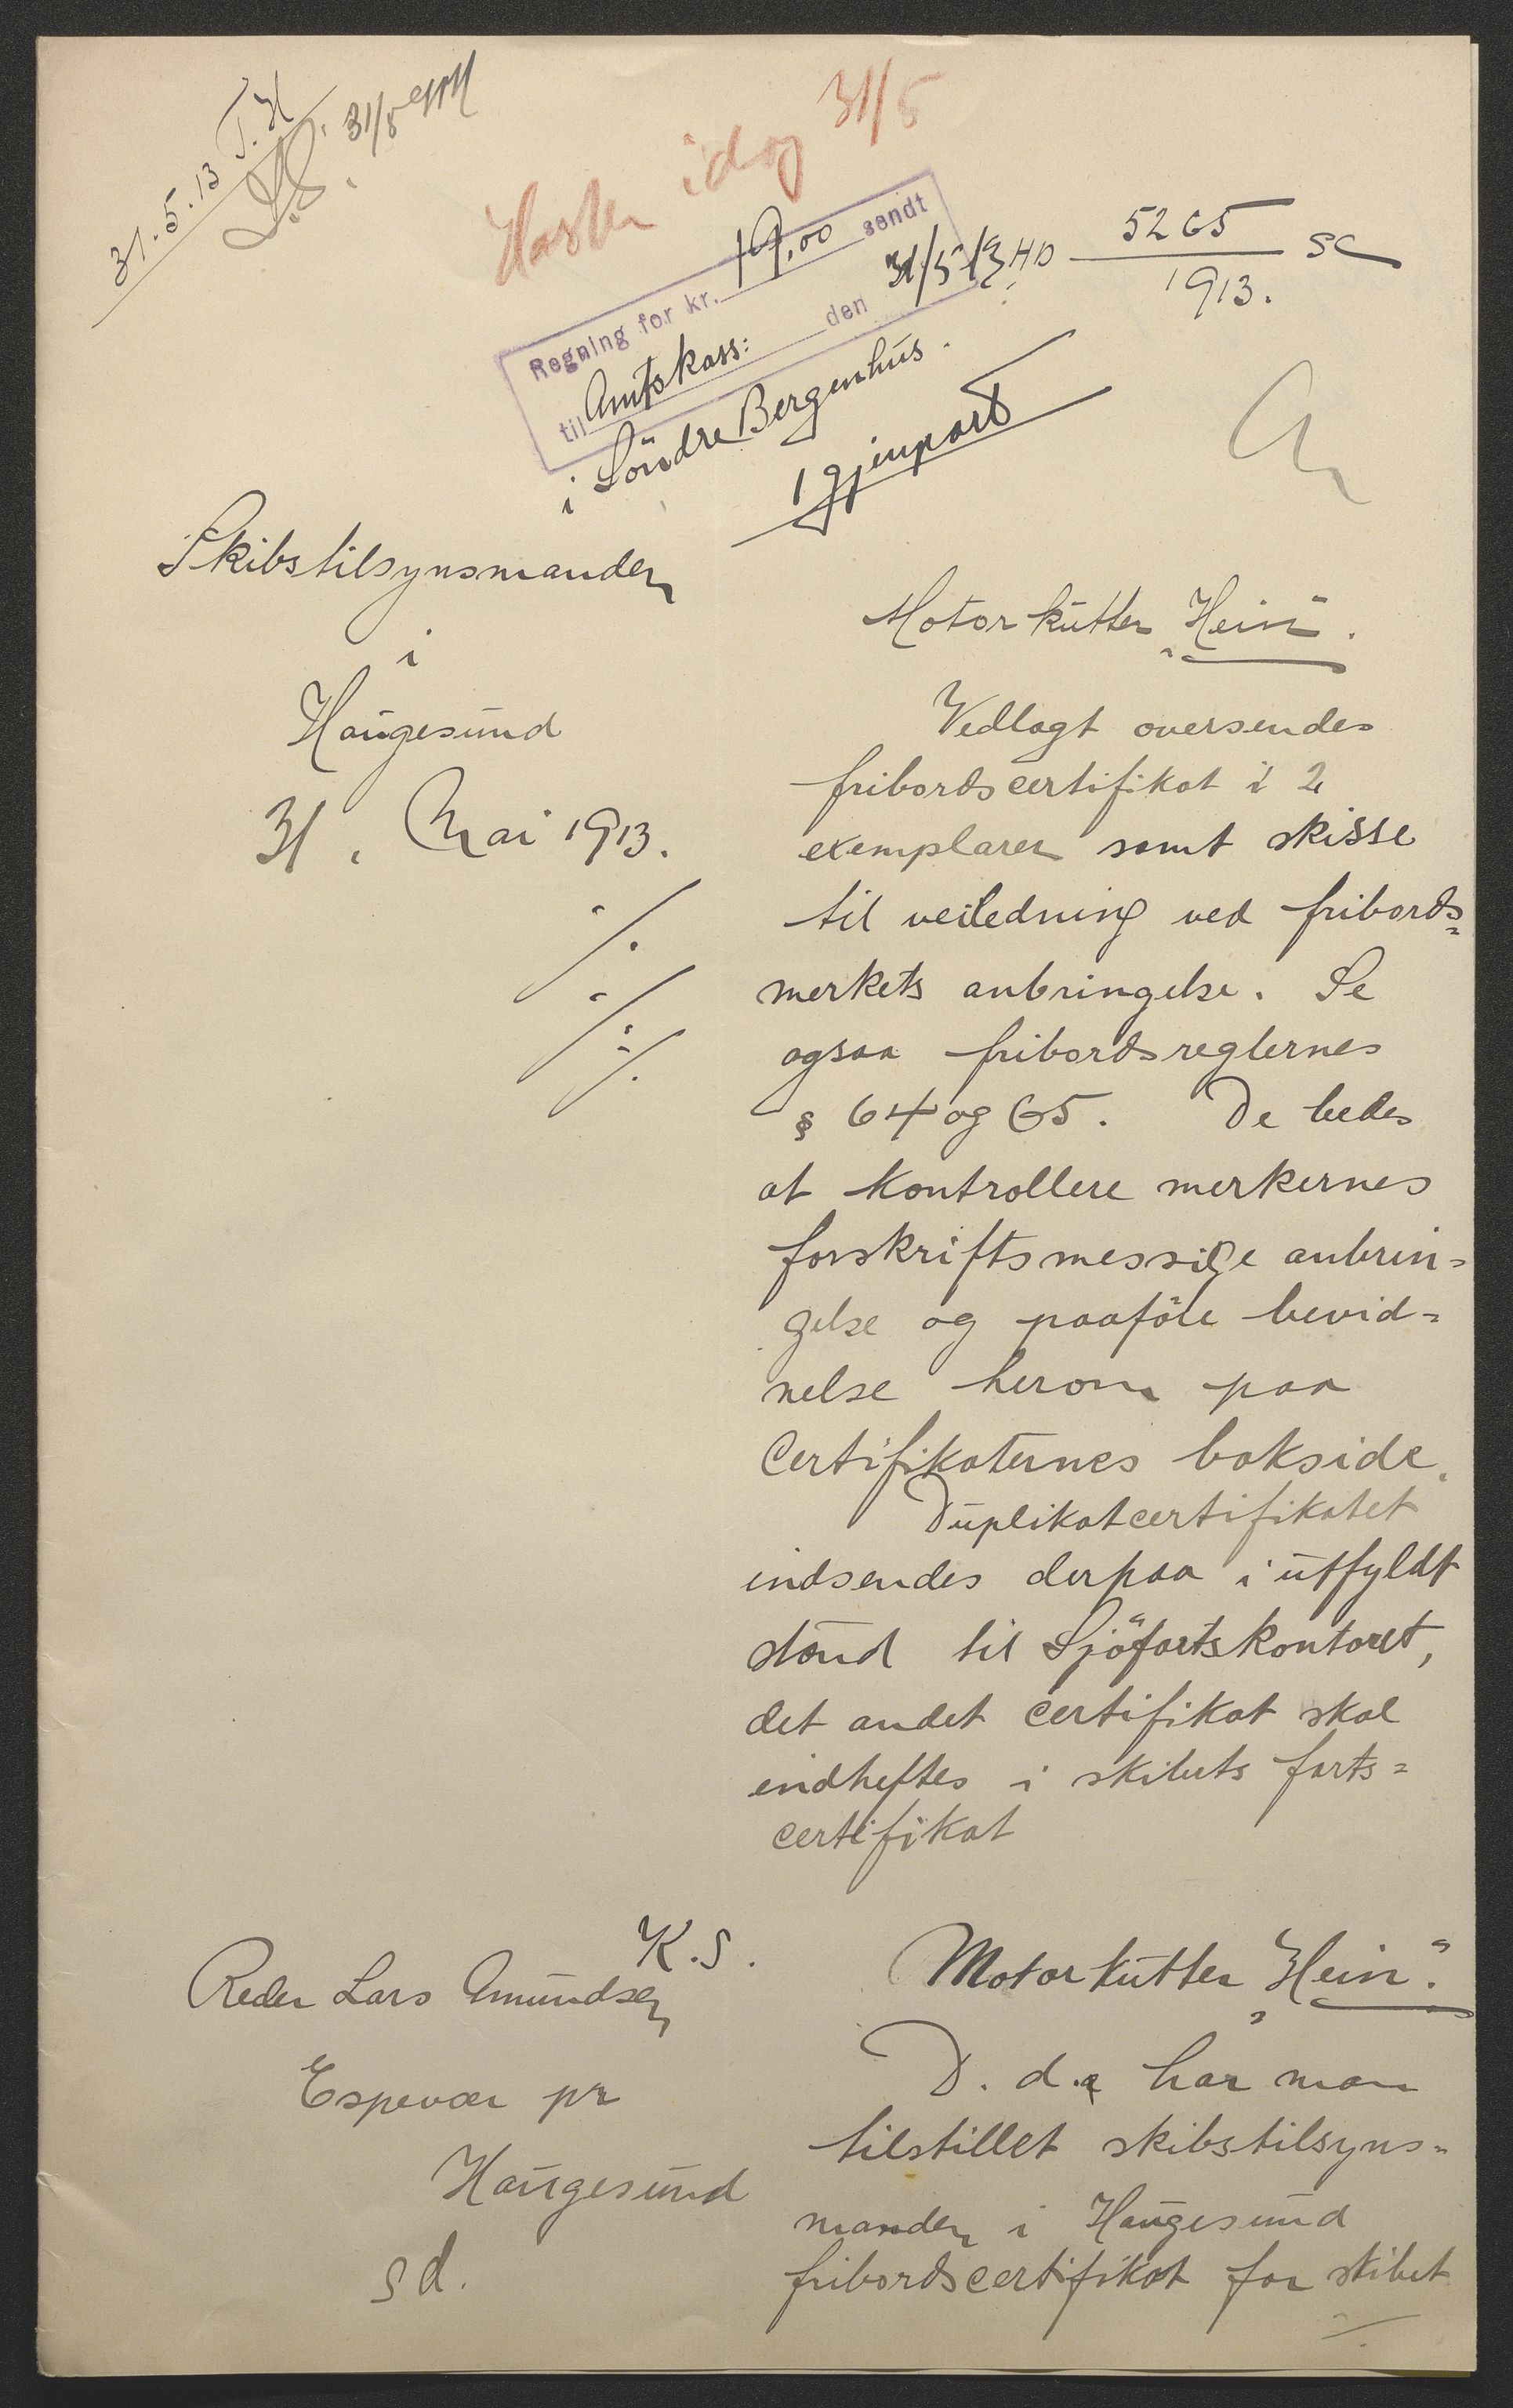 31.5.13 T.H
31/5
Haster idag 31/5
Regning for kr. 19,00 sendt
til Amtskass: den 31/5 13 HD
i Söndre Bergenhus.
1 gjenpart
5265 SC
1913.
Skibstilsynsmanden
i
Haugesund
31. Mai 1913.
Motorkutter "Hein".
Vedlagt oversendes
fribordscertifikat i 2
exemplarer samt skisse
til veiledning ved fribords=
merkets anbringelse. Se
ogsaa fribordsreglernes
§ 64 og 65. De bedes
at kontrollere merkernes
forskriftsmessige anbrin=
gelse og paaföre bevid=
nelse herom paa
Certifikaternes bakside.
Duplikatcertifikatet
indsendes derpaa i utfyldt
stand til Sjöfartskontoret,
det andet certifikat skal
indheftes i skibets farts=
certifikat
K.S.
Reder Lars Amundsen
Espevær pr
Haugesund
s d.
Motorkutter "Hein".
D. d. har man
tilstillet skibstilsyns=
manden i Haugesund
fribordscertifikat for skibet